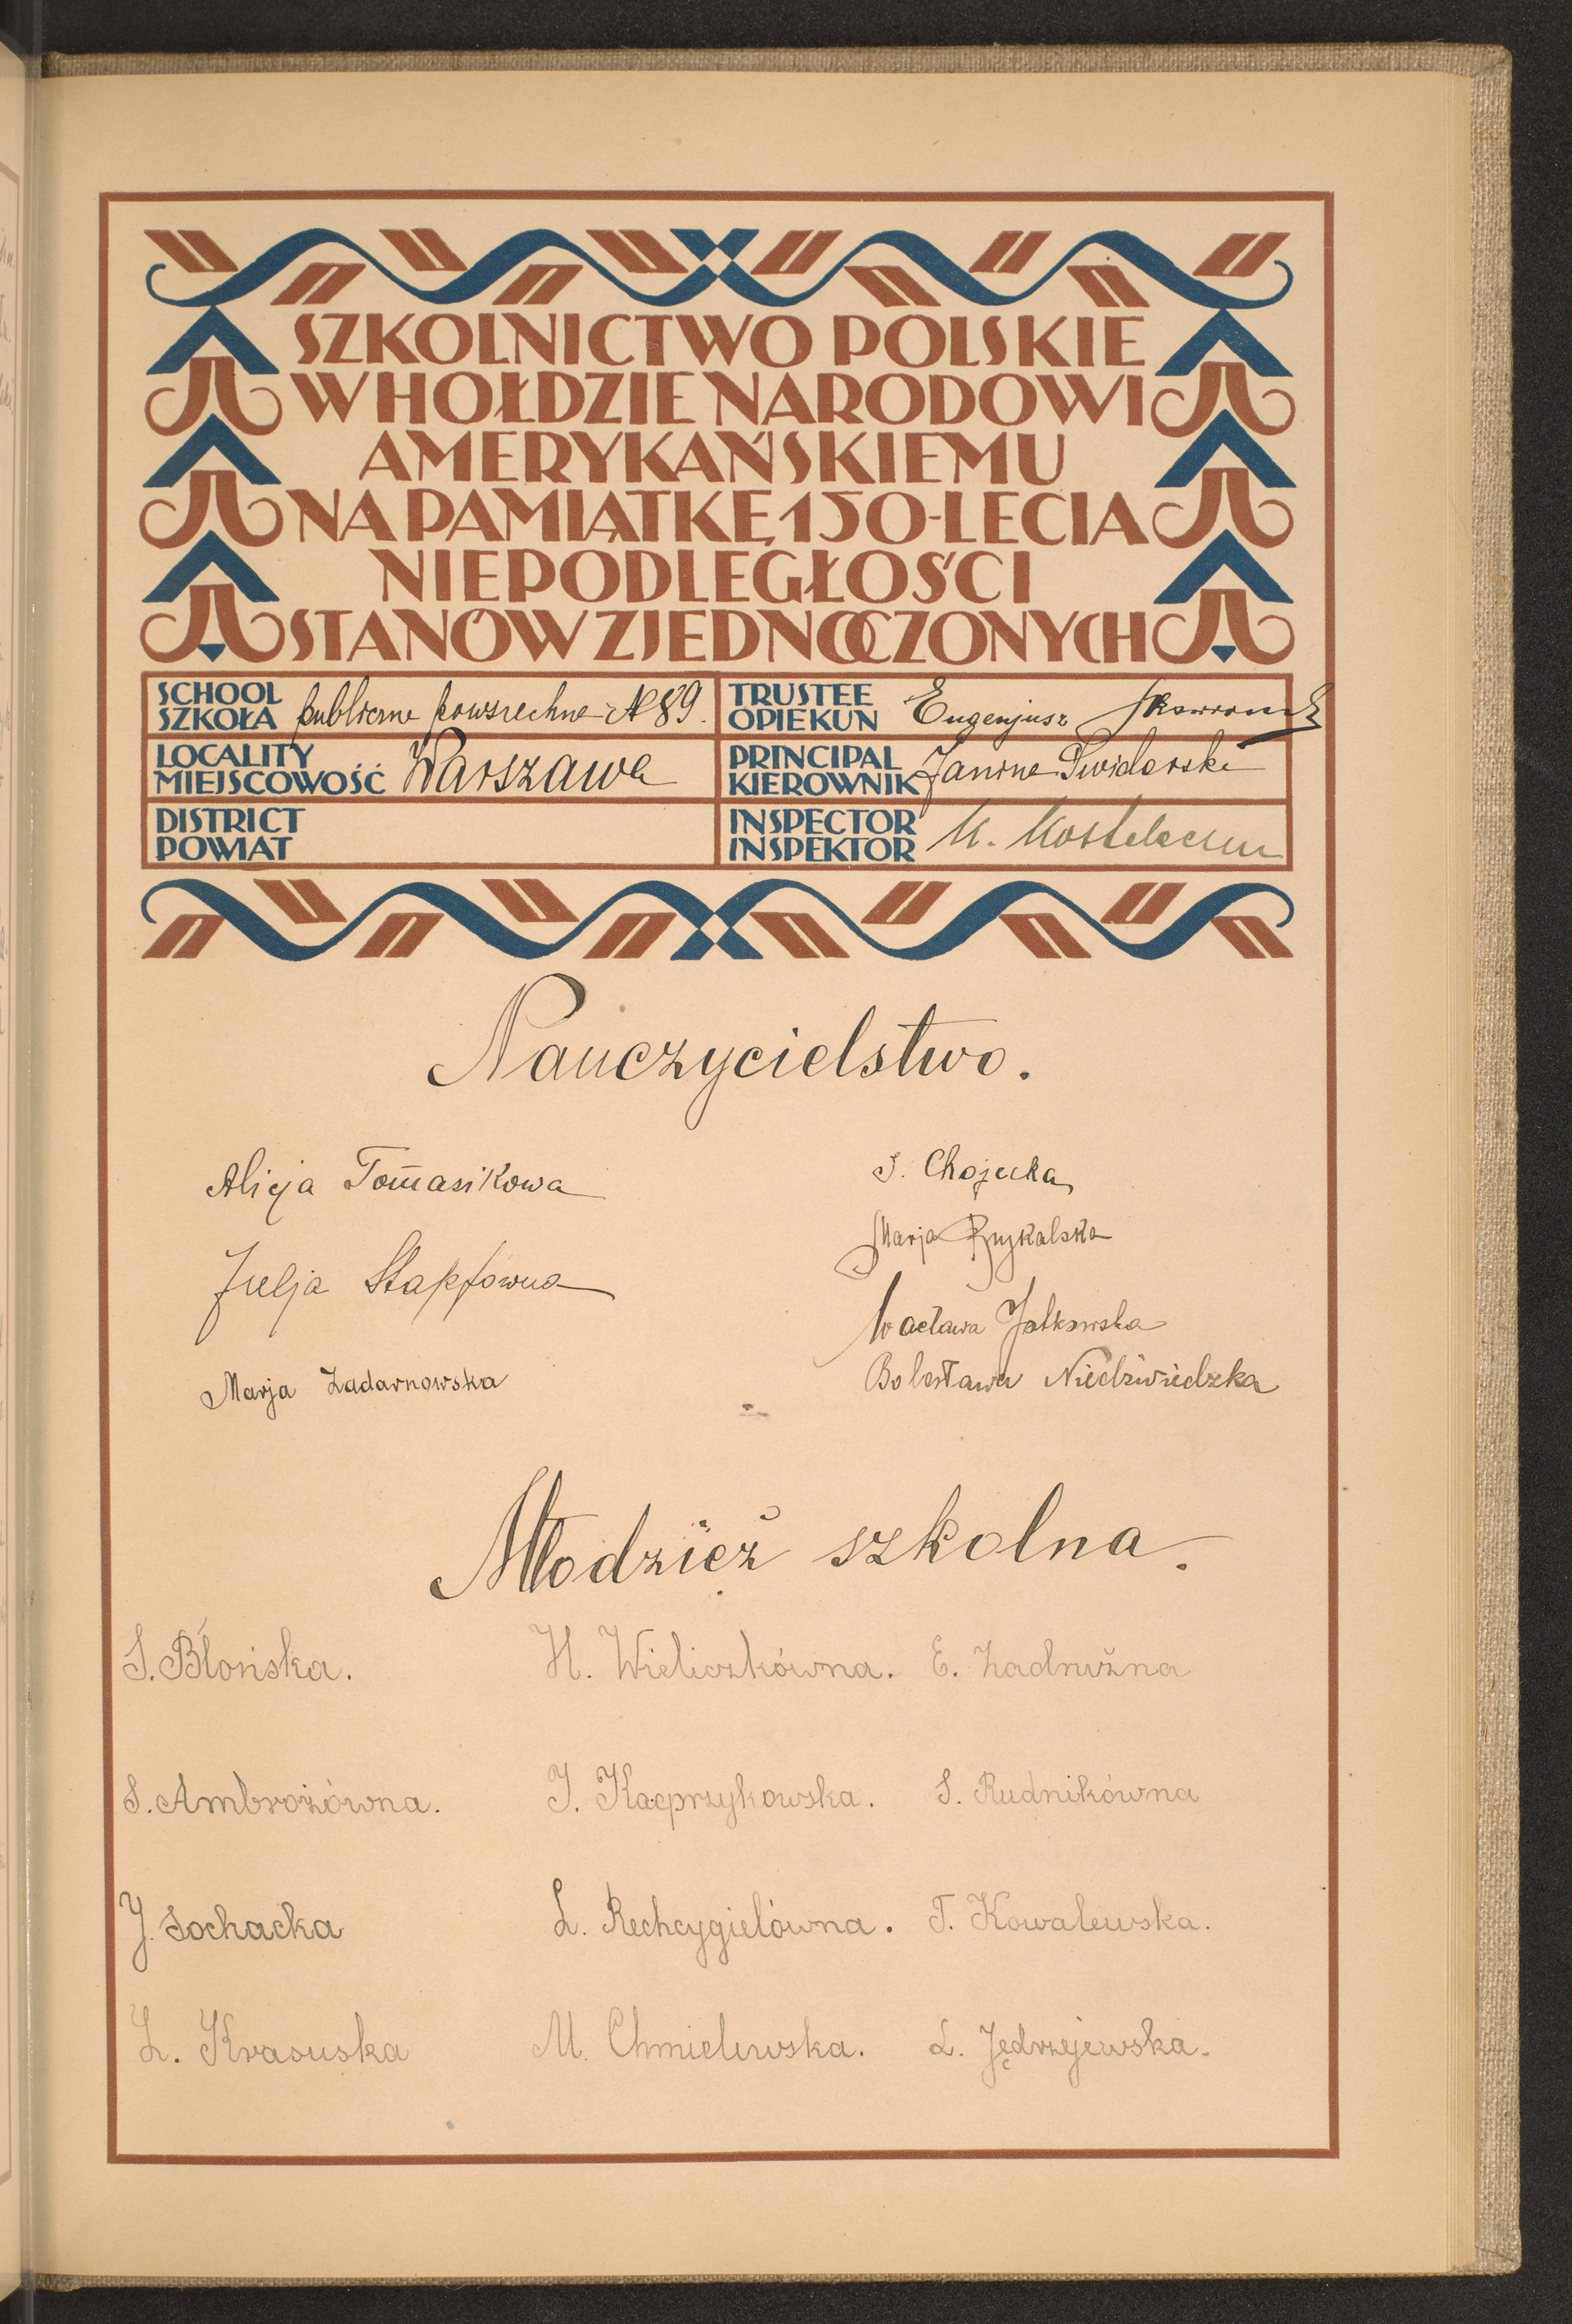 SZKOLNICTWO POLSKIE
W HOŁDZIE NARODOWI
AMERYKAŃSKIEMU
NA PAMIĄTKĘ 150-LECIA
NIEPODLEGŁOŚCI
STANÓW ZJEDNOCZONYCH
SCHOOL
SZKOŁA publiczna powszechna № 89.
TRUSTEE
OPIEKUN Eugenjusz
LOCALITY
MIEJSCOWOŚĆ Warszawa
PRINCIPAL
KIEROWNIK Janina Świdarska
DISTRICT
POWIAT
INSPECTOR
INSPEKTOR
Nauczycielstwo.
Alicja Tomasikowa
Julja Stapfówna
Marja Zadarnowska
J. Chojecka
Marja
Wacława Jatkowska
Bolesława Niedźwiedzka
Młodzież szkolna.
S. Błońska. H. Wieliczkówna. E. Zadrużna
S. Ambrożówna. J. Kacprzykowska. S. Rudnikówna
J. Sochacka L. Rechcygielówna. T. Kowalewska.
L. Krasuska M. Chmielewska. L. Jędrzejewska.